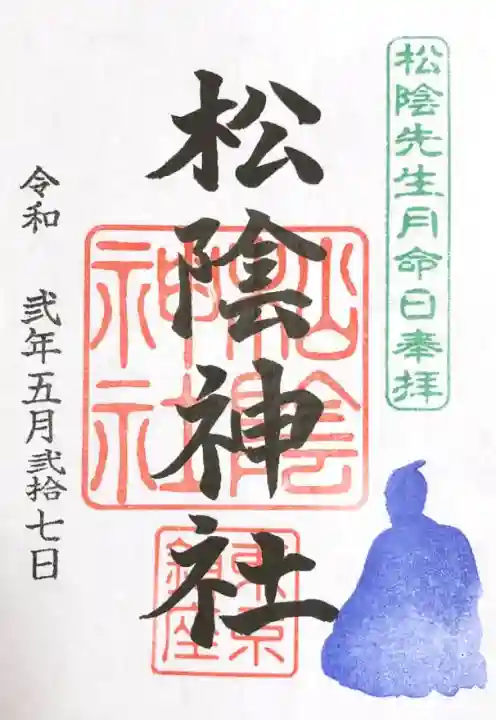 松陰先生月命日奉拝
松陰神社
松陰神社
東京鎮座
令和 弐年五月弐拾七日